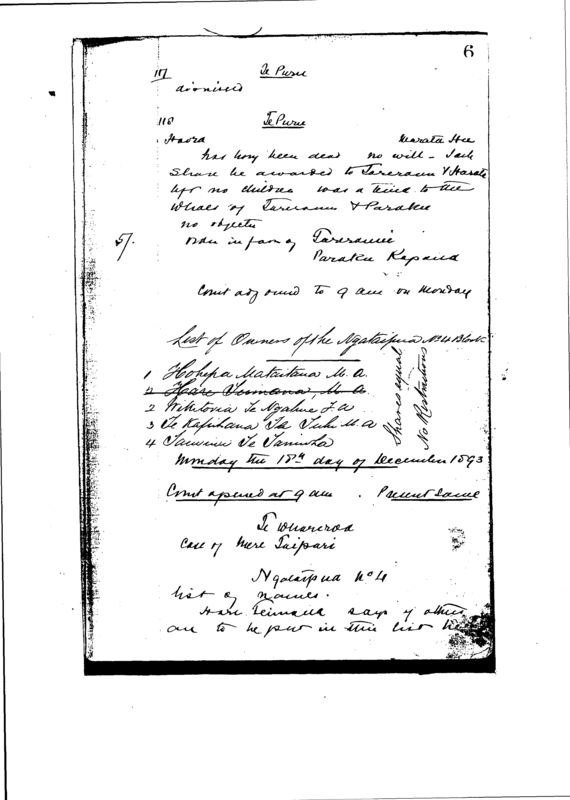 6
117 Te Puru
dismissed
118 Te Puru
Haora Marata
has long been dead no will –
Share be awarded to Tareranui &
left no children was a to the
of Tareranui & Paraku
no objectn
5/. Order in favor of Tareranui
Paraku Kapana
Court adjourned to 9 am on Monday
List of Owners of the Ngataipua No 4 Block
1 Hohepa Mataitaua M. A.
2 Hare Teimana, M. A.
2 Wikitoria Te Ngahue F. A
3 Te Kapihana Te Tuhi M A
4 Te Taniwha
Shares equal
No Restrictions
Monday the 18th day of December 1893
Court opened at 9 am. Present same
Te Whareroa
Case of Mere Taipari
Ngataipua No 4
list of names.
Hare Teimana says if others
are to be put in this list he